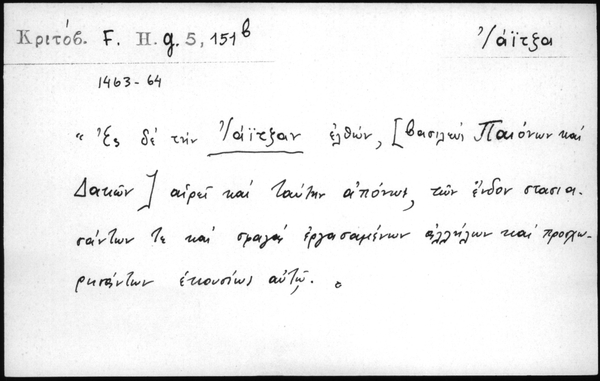 Κριτόβ. F. H. g. 5, 151ᵇ
Ἰάϊτξα
1463-64
"Ἐς δὲ τὴν Ἰάϊτξαν ἐλθών, [βασιλεὺς Παιόνων καὶ
Δακῶν] αἱρεῖ καὶ ταύτην ἀπόνως, τῶν ἔνδον στασια-
σάντων τε καὶ σφαγὰς ἐργασαμένων ἀλλήλων καὶ προσχω-
ρησάντων ἑκουσίως αὐτῷ.